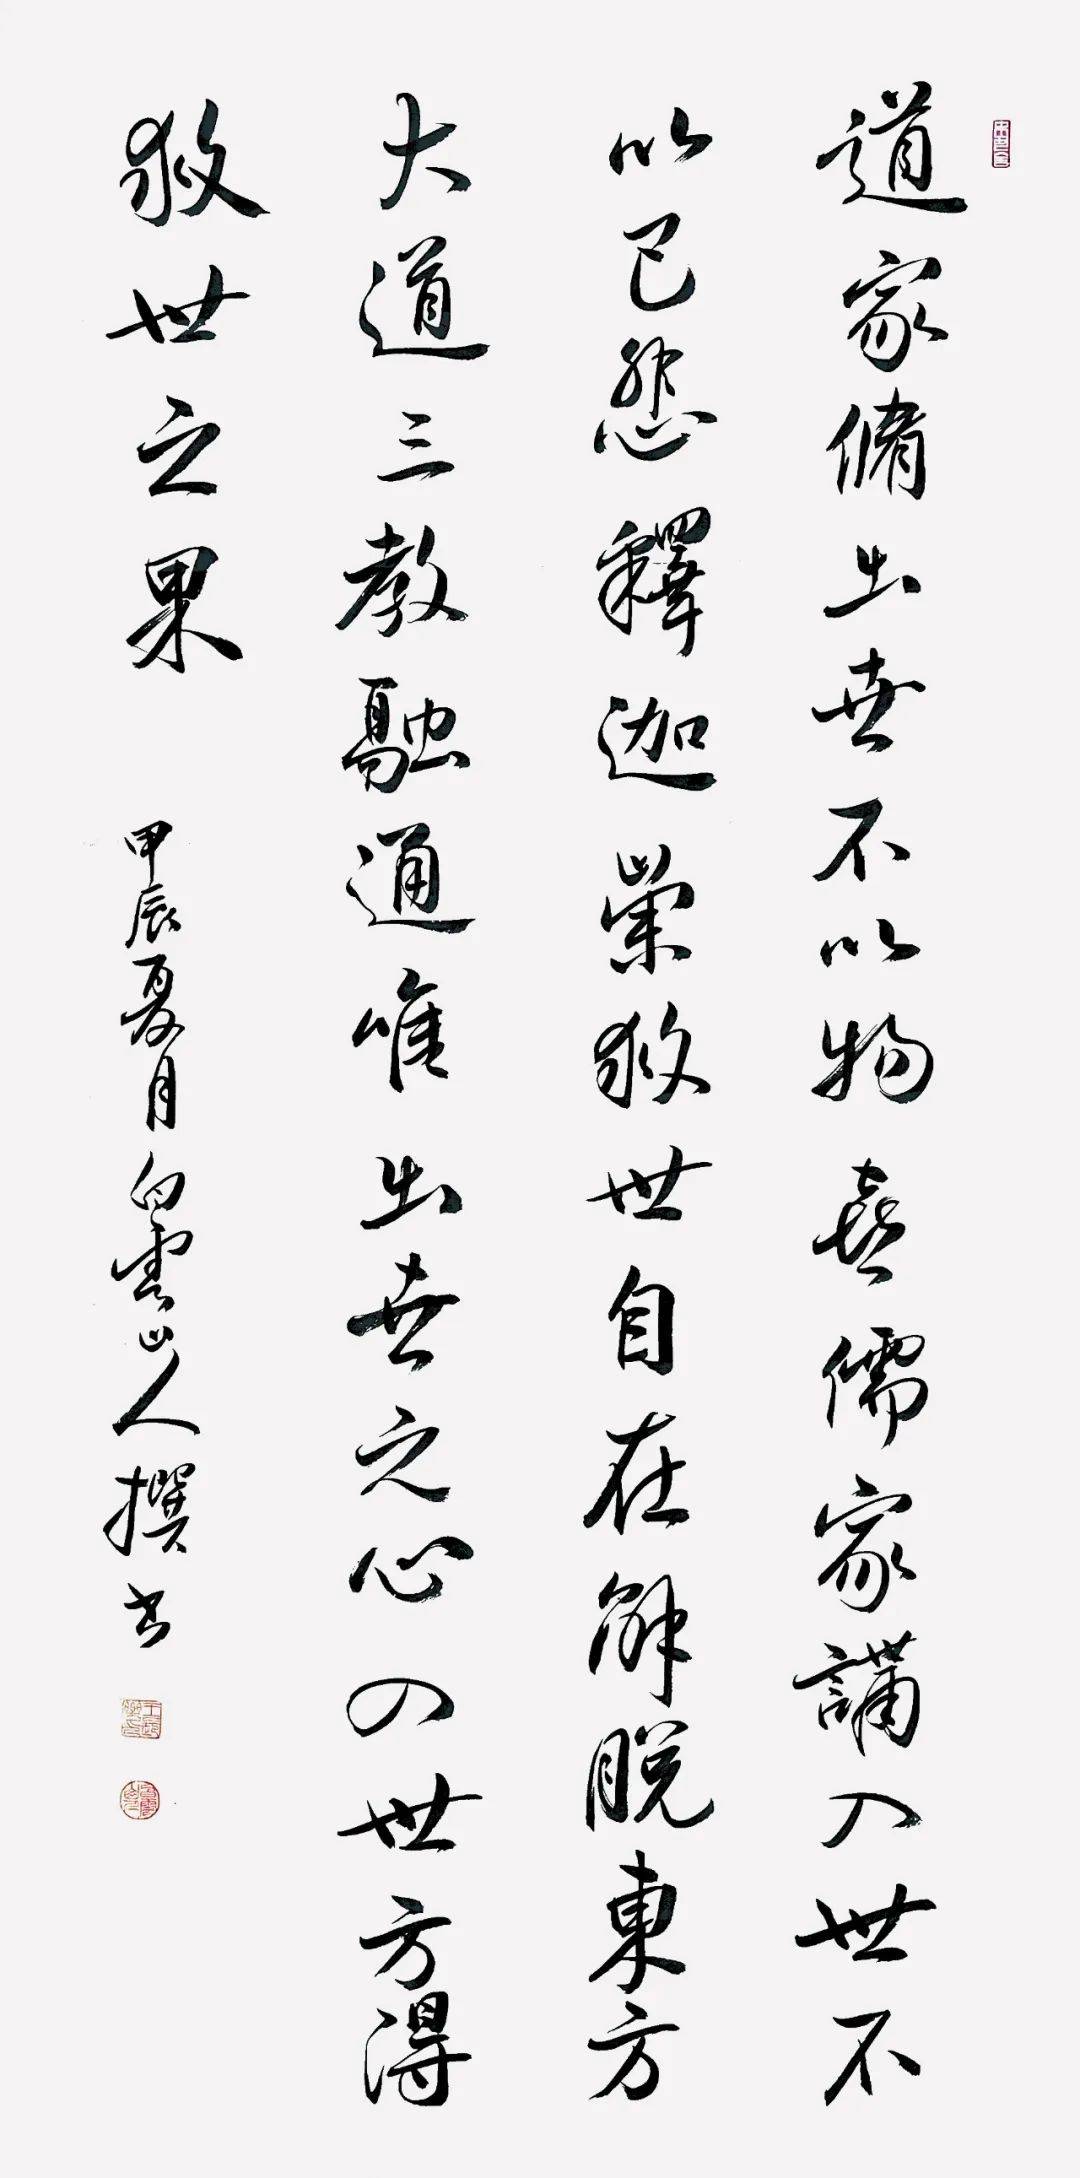 道家脩出世不以物喜儒家講入世不
以己悲釋迦崇救世自在解脫東方
大道三教融通唯出世之心入世方得
救世之果
甲辰夏月白雲山人撰书